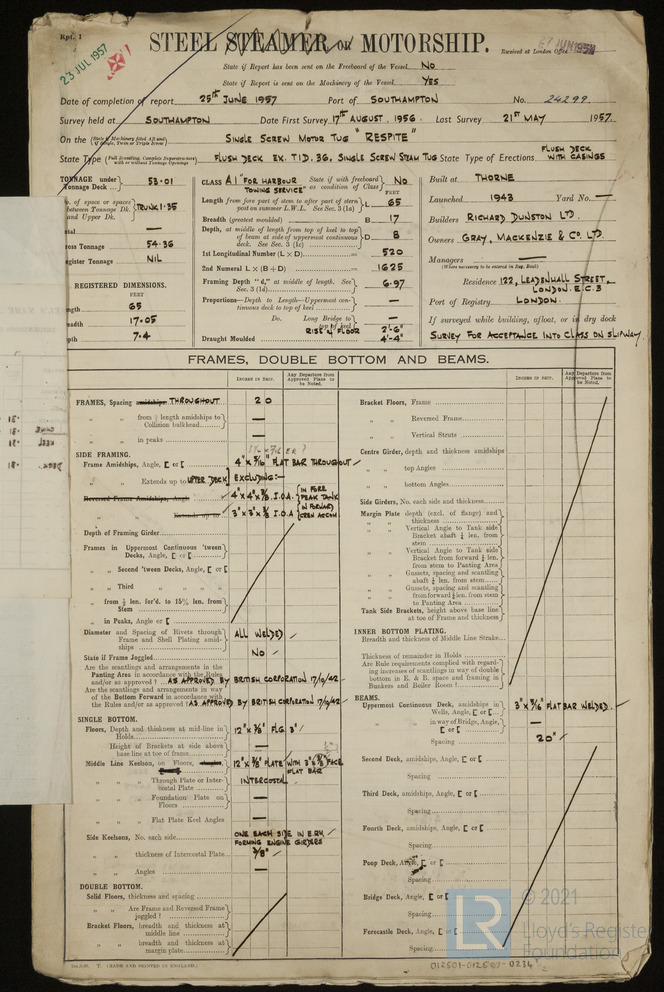 Rpt. 1
23 JUL 1957
STEEL STEAMER OR MOTORSHIP.
Received at London Office
State if Report has been sent on the Freeboard of the Vessel. No
State if Report is sent on the Machinery of the Vessel. YES
Date of completion of report. 25th JUNE 1957 Port of SOUTHAMPTON No. 24299
Survey held at SOUTHAMPTON Date First Survey 17th AUGUST. 1956. Last Survey 21ST MAY 1957.
On the SINGLE SCREW MOTOR TUG "RESPITE"
State Type FLUSH DECK EX. T.I.D. 36, SINGLE SCREW STEAM TUG State Type of Erections FLUSH DECK WITH CASINGS
TONNAGE under Tonnage Deck 53.01
TRUNK 1.35
Gross Tonnage 54.36
Register Tonnage NIL
REGISTERED DIMENSIONS.
FEET
65
17.05
7.4
CLASS A1 "FOR HARBOUR TOWING SERVICE" State if with freeboard as condition of Class No
FEET
Length from fore part of stem to after part of stern post on summer L.W.L. See Sec. 3 (1a) L 65
Breadth (greatest moulded) B 17
Depth, at middle of length from top of keel to top of beam at side of uppermost continuous deck. See Sec. 3 (1c) D 8
1st Longitudinal Number (L × D) 520
2nd Numeral L × (B + D) 1625
Framing Depth "d," at middle of length. See Sec. 3 (1d) 6.97
Proportions—Depth to Length—Uppermost continuous deck to top of keel —
Do. Long Bridge to top of keel —
RISE OF FLOOR 2'-6"
Draught Moulded 4'-4"
Built at THORNE
Launched 1943 Yard No. —
Builders RICHARD DUNSTON LTD.
Owners GRAY, MACKENZIE & CO. LTD.
Managers —
(Where necessary to be entered in Reg. Book)
Residence 122, LEADENHALL STREET, LONDON. E.C.3
Port of Registry LONDON.
If surveyed while building, afloat, or in dry dock
SURVEY FOR ACCEPTANCE INTO CLASS ON SLIPWAY.
FRAMES, DOUBLE BOTTOM AND BEAMS.
INCHES IN SHIP. Any Departure from Approved Plans to be Noted.
INCHES IN SHIP. Any Departure from Approved Plans to be Noted.
FRAMES, Spacing amidships THROUGHOUT 20
" " from ⅗ length amidships to Collision bulkhead —
" " in peaks —
SIDE FRAMING.
Frame Amidships, Angle, [ or [ 4" × 5/16" FLAT BAR THROUGHOUT
" " Extends up to UPPER DECK EXCLUDING:—
Reversed Frame Amidships, Angle 4" × 4" × 3/8 I.O.A. IN FORE PEAK TANK
" " Extends up to 3" × 3" × 3/8 I.O.A. IN FORWARD CREW ACCOM
Depth of Framing Girder
Frames in Uppermost Continuous 'tween Decks, Angle, [ or [
" " Second 'tween Decks, Angle, [ or [
" " Third " " " "
" " from ⅗ len. for'd. to 15% len. from Stem
" " in Peaks, Angle or [
Diameter and Spacing of Rivets through Frame and Shell Plating amidships ALL WELDED
State if Frame Joggled NO
Are the scantlings and arrangements in the Panting Area in accordance with the Rules and/or as approved? AS APPROVED BY BRITISH CORPORATION 17/9/42
Are the scantlings and arrangements in way of the Bottom Forward in accordance with the Rules and/or as approved? AS APPROVED BY BRITISH CORPORATION 17/9/42
SINGLE BOTTOM.
Floors, Depth and thickness at mid-line in Holds 12" × 3/8" FLG. 3"
Height of Brackets at side above base line at toe of frame —
Middle Line Keelson, on Floors, 12" × 3/8" PLATE WITH 3" × 3/8" FACE FLAT BAR
" " Through Plate or Intercostal Plate INTERCOSTAL
" " Foundation Plate on Floors —
" " Flat Plate Keel Angles —
Side Keelsons, No. each side ONE EACH SIDE IN E.RM. FORMING ENGINE GIRDERS
" " thickness of Intercostal Plate 3/8"
" " Angles —
DOUBLE BOTTOM.
Solid Floors, thickness and spacing
" " Are Frame and Reversed Frame joggled?
Bracket Floors, breadth and thickness at middle line
" " breadth and thickness at margin plate
Bracket Floors, Frame
" " Reversed Frame
" " Vertical Struts
Centre Girder, depth and thickness amidships
" " top Angles
" " bottom Angles
Side Girders, No. each side and thickness
Margin Plate depth (excl. of flange) and thickness
" " Vertical Angle to Tank side Bracket abaft ¼ len. from stem
" " Vertical Angle to Tank side Bracket from forward ¼ len. from stem to Panting Area
" " Gussets, spacing and scantling abaft ¼ len. from stem
" " Gussets, spacing and scantling from forward ¼ len. from stem to Panting Area
Tank Side Brackets, height above base line at toe of Frame and thickness
INNER BOTTOM PLATING.
Breadth and thickness of Middle Line Strake
Thickness of remainder in Holds
Are Rule requirements complied with regarding increases of scantlings in way of double bottom in E. & B. space and framing in Bunkers and Boiler Room?
BEAMS.
Uppermost Continuous Deck, amidships, in Wells, Angle, [ or [ 3" × 5/16" FLAT BAR WELDED.
" " in way of Bridge, Angle, [ or [ —
Spacing 20"
Second Deck, amidships, Angle, [ or [
Spacing
Third Deck, amidships, Angle, [ or [
Spacing
Fourth Deck, amidships, Angle, [ or [
Spacing
Poop Deck, Angle, [ or [
Spacing
Bridge Deck, Angle, [ or [
Spacing
Forecastle Deck, Angle, [ or [
Spacing
(MADE AND PRINTED IN ENGLAND.)
LR
© 2021
Lloyd's Register
Foundation
012501-012507-0234